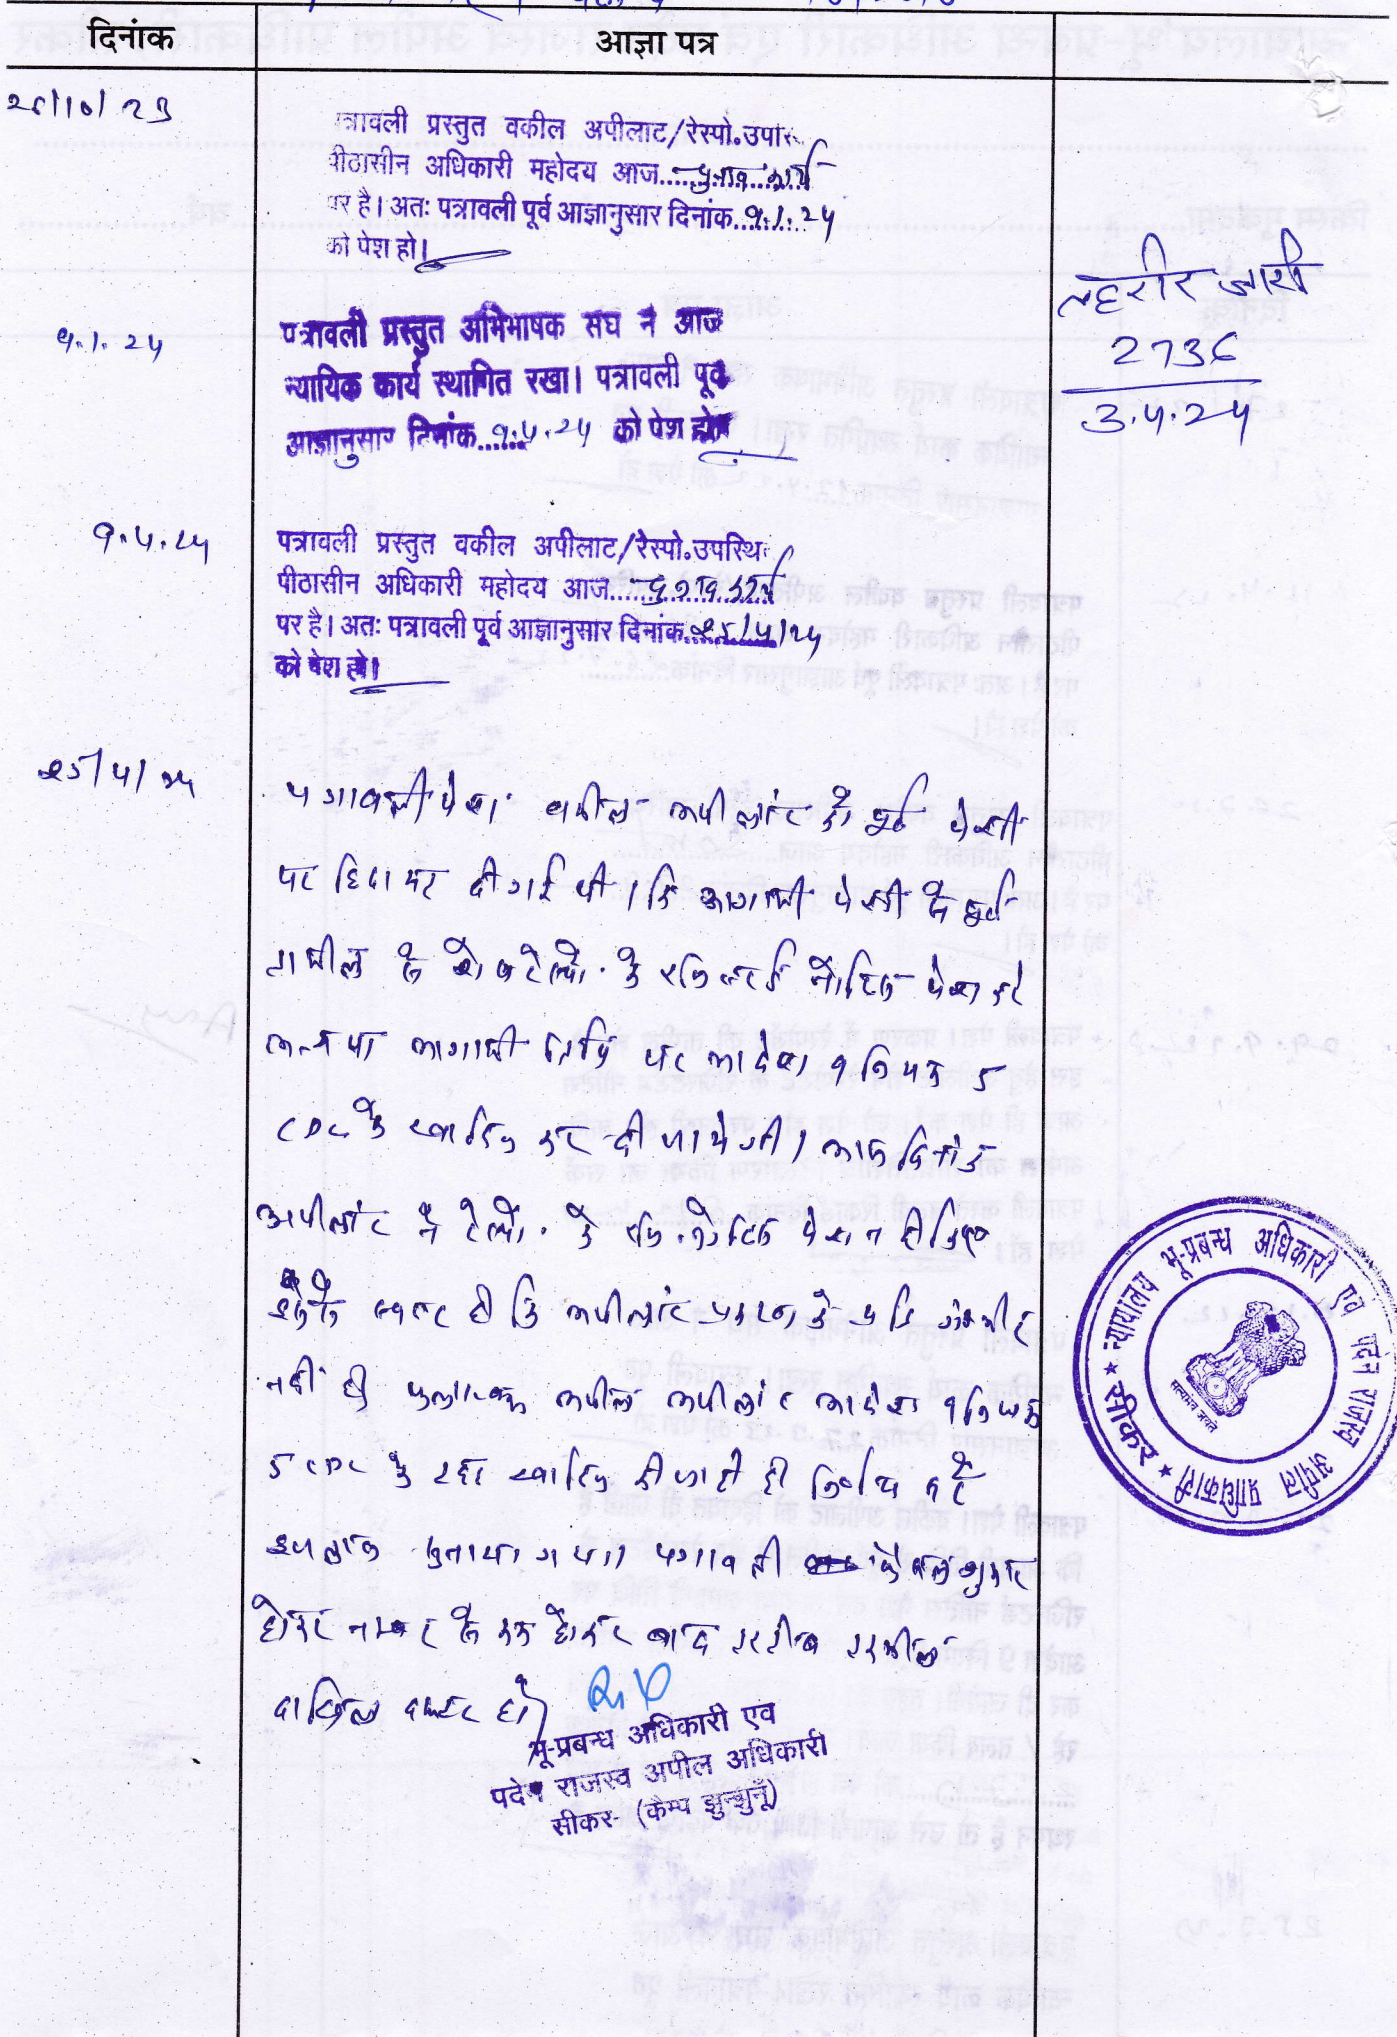 दिनांक
आज्ञा पत्र
पत्रावली प्रस्तुत वकील अपीलाट/रेस्पो.उपस्
पीठासीन अधिकारी महोदय आज......चुनाव कार्य
पर है। अतः पत्रावली पूर्व आज्ञानुसार दिनांक..9.1.24
को पेश हो।
9.1.24
पत्रावली प्रस्तुत अभिभाषक संघ ने आज
न्यायिक कार्य स्थागित रखा। पत्रावली पूर्व
आज्ञानुसार दिनांक 9.4.24 को पेश होवे
तहरीर जारी
2736
3.4.24
9.4.24
पत्रावली प्रस्तुत वकील अपीलाट/रेस्पो.उपस्थि
पीठासीन अधिकारी महोदय आज......चुनाव कार्य
पर है। अतः पत्रावली पूर्व आज्ञानुसार दिनांक..25/4/24
को पेश हो।
25/4/24
पत्रावली पेश। वकील अपीलांट को पूर्व पेशी
पर हिदायत दी गई थी। कि आगामी पेशी से पूर्व
तामील के रेस्पो. के रजिस्टर्ड नोटिस पेश करे
अन्यथा आगामी तिथि पर आदेश 9 नियम 5
CPC के खारिज कर दी जायेगी। आज दिनांक
अपीलांट ने रेस्पो. के रजि. नोटिस पेश न किए
स्पष्ट है कि अपीलांट प्रकरण के प्रति गम्भीर
नहीं है। फलस्वरूप अपील अपीलांट आदेश 9 नियम
5 CPC के तहत खारिज की जाती है। निर्णय
इजलास सुनाया गया। पत्रावली फैसल शुमार
होकर नम्बर से कम होकर बाद तरतीब तकमील
दाखिल दफ्तर हो।
भू-प्रबन्ध अधिकारी एव
पदेन राजस्व अपील अधिकारी
सीकर- (कैम्प झुन्झुनूँ)
न्यायालय भू-प्रबन्ध अधिकारी एव पदेन राजस्व अपील प्राधिकारी
★ सीकर ★
सत्यमेव जयते